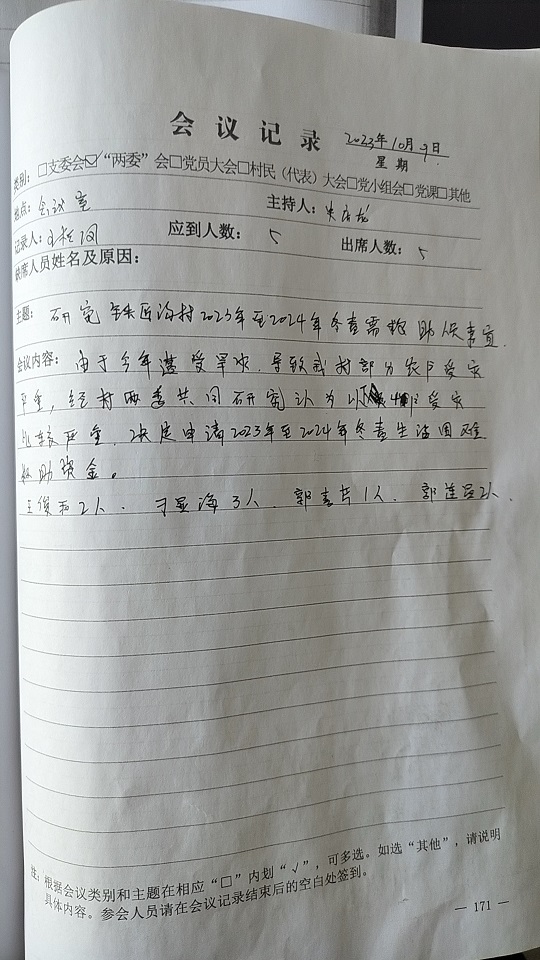 会议记录 2023年10月9日
星期
类别：□支委会☑“两委”会□党员大会□村民（代表）大会□党小组会□党课□其他
地点：会议室 主持人：
记录人： 应到人数：5 出席人数：5
缺席人员姓名及原因：
主题：研究铁匠沟村2023年至2024年冬春需救助人员事宜.
会议内容：由于今年遭受旱灾.导致我村部分农户受灾
严重，经村两委共同研究认为以下4户受灾
比较严重.决定申请2023年至2024年冬春生活困难
救助资金。
王俊和2人. 于显海3人. 郭志芹1人. 郭连臣2人.
注：根据会议类别和主题在相应“□”内划“√”，可多选。如选“其他”，请说明
具体内容。参会人员请在会议记录结束后的空白处签到。
— 171 —